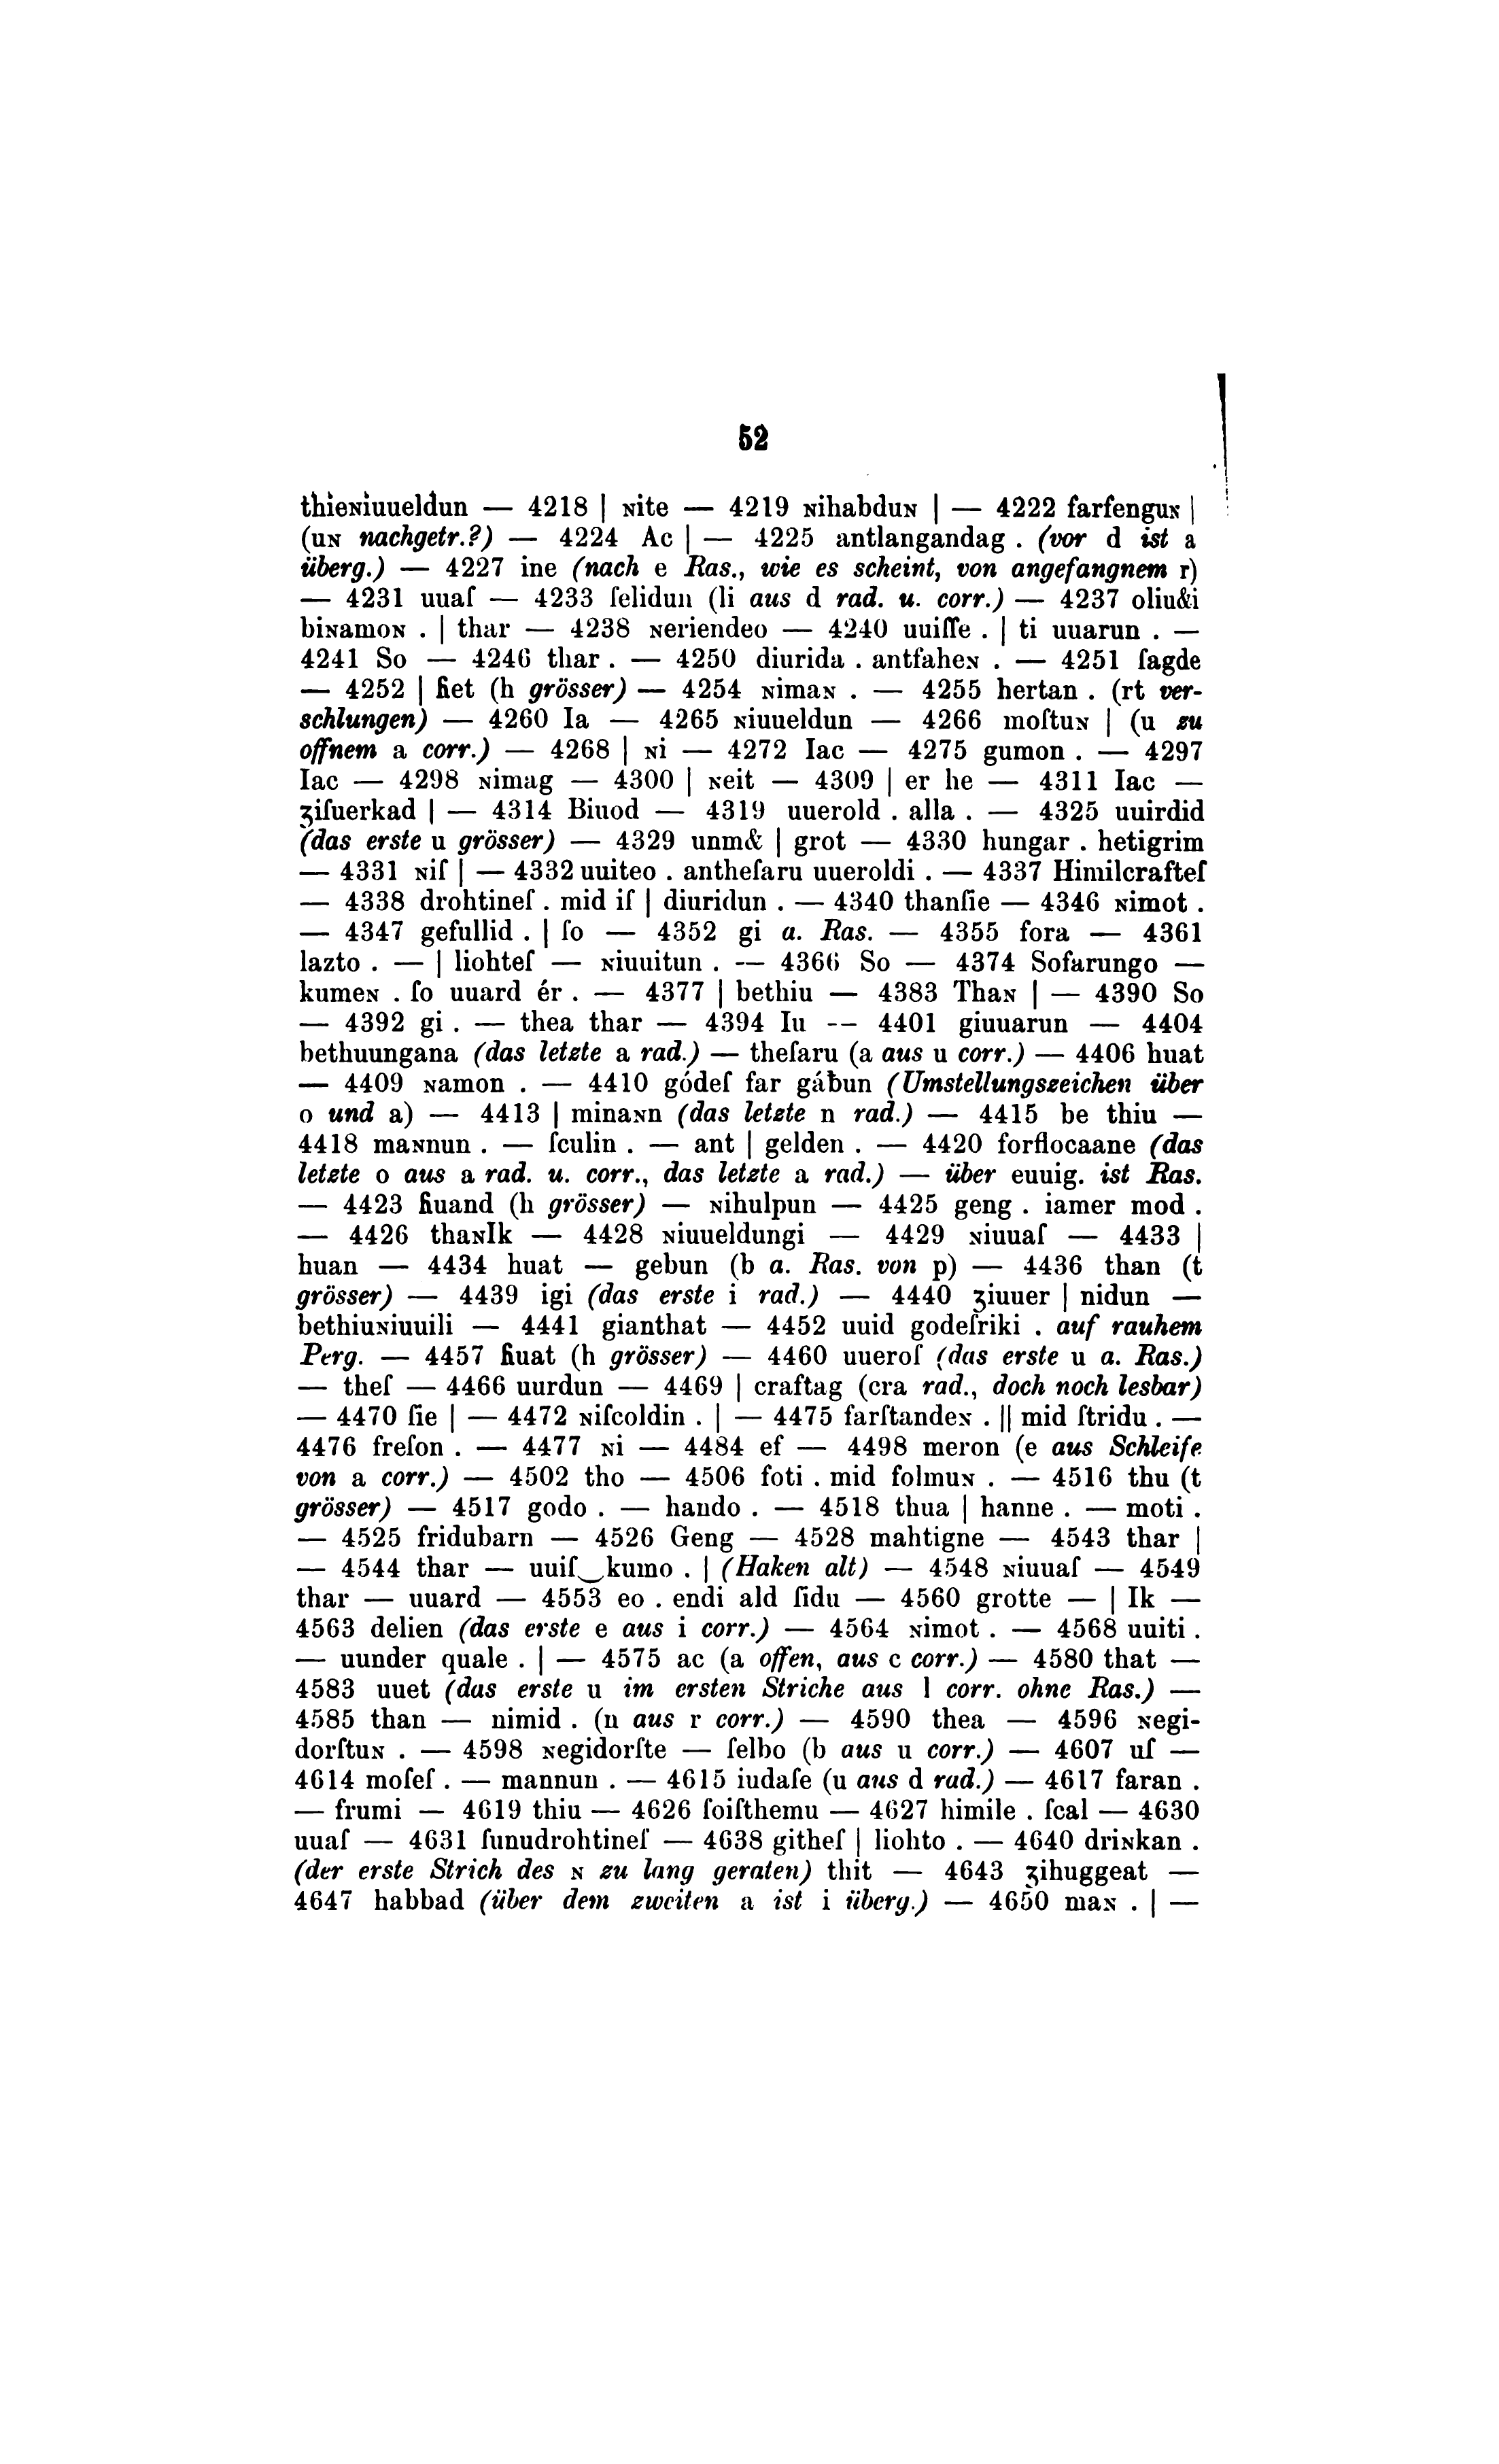 52
thieɴiuueldun — 4218 | ɴite — 4219 ɴihabduɴ | — 4222 farfenguɴ |
(uɴ nachgetr.?) — 4224 Ac | — 4225 antlangandag . (vor d ist a
überg.) — 4227 ine (nach e Ras., wie es scheint, von angefangnem r)
— 4231 uuaſ — 4233 ſelidun (li aus d rad. u. corr.) — 4237 oliu&i
biɴamoɴ . | thar — 4238 ɴeriendeo — 4240 uuiſſe . | ti uuarun . —
4241 So — 4246 thar . — 4250 diurida . antfaheɴ . — 4251 ſagde
— 4252 | het (h grösser) — 4254 ɴimaɴ . — 4255 hertan . (rt ver-
schlungen) — 4260 Ia — 4265 ɴiuueldun — 4266 moſtuɴ | (u zu
offnem a corr.) — 4268 | ɴi — 4272 Iac — 4275 gumon . — 4297
Iac — 4298 ɴimag — 4300 | ɴeit — 4309 | er he — 4311 Iac —
ʒiſuerkad | — 4314 Biuod — 4319 uuerold . alla . — 4325 uuirdid
(das erste u grösser) — 4329 unm& | grot — 4330 hungar . hetigrim
— 4331 ɴiſ | — 4332 uuiteo . antheſaru uueroldi . — 4337 Himilcrafteſ
— 4338 drohtineſ . mid iſ | diuridun . — 4340 thanſie — 4346 ɴimot .
— 4347 gefullid . | ſo — 4352 gi a. Ras. — 4355 fora — 4361
lazto . — | liohteſ — ɴiuuitun . — 4366 So — 4374 Sofarungo —
kumeɴ . ſo uuard ér . — 4377 | bethiu — 4383 Thaɴ | — 4390 So
— 4392 gi . — thea thar — 4394 Iu — 4401 giuuarun — 4404
bethuungana (das letzte a rad.) — theſaru (a aus u corr.) — 4406 huat
— 4409 ɴamon . — 4410 gódeſ far gáƀun (Umstellungszeichen über
o und a) — 4413 | minaɴn (das letzte n rad.) — 4415 be thiu —
4418 maɴnun . — ſculin . — ant | gelden . — 4420 forflocaane (das
letzte o aus a rad. u. corr., das letzte a rad.) — über euuig. ist Ras.
— 4423 huand (h grösser) — ɴihulpun — 4425 geng . iamer mod .
— 4426 thaɴIk — 4428 ɴiuueldungi — 4429 ɴiuuaſ — 4433 |
huan — 4434 huat — gebun (b a. Ras. von p) — 4436 than (t
grösser) — 4439 igi (das erste i rad.) — 4440 ʒiuuer | nidun —
bethiuɴiuuili — 4441 gianthat — 4452 uuid godeſriki . auf rauhem
Perg. — 4457 huat (h grösser) — 4460 uueroſ (das erste u a. Ras.)
— theſ — 4466 uurdun — 4469 | craftag (cra rad., doch noch lesbar)
— 4470 ſie | — 4472 ɴiſcoldin . | — 4475 farſtandeɴ . || mid ſtridu . —
4476 freſon . — 4477 ɴi — 4484 ef — 4498 meron (e aus Schleife
von a corr.) — 4502 tho — 4506 foti . mid folmuɴ . — 4516 thu (t
grösser) — 4517 godo . — hando . — 4518 thua | hanne . — moti .
— 4525 fridubarn — 4526 Geng — 4528 mahtigne — 4543 thar |
— 4544 thar — uuiſ‿kumo . | (Haken alt) — 4548 ɴiuuaſ — 4549
thar — uuard — 4553 eo . endi ald ſidu — 4560 grotte — | Ik —
4563 delien (das erste e aus i corr.) — 4564 ɴimot . — 4568 uuiti .
— uunder quale . | — 4575 ac (a offen, aus c corr.) — 4580 that —
4583 uuet (das erste u im ersten Striche aus l corr. ohne Ras.) —
4585 than — nimid . (n aus r corr.) — 4590 thea — 4596 ɴegi-
dorſtuɴ . — 4598 ɴegidorſte — ſelbo (b aus u corr.) — 4607 uſ —
4614 moſeſ . — mannun . — 4615 iudaſe (u aus d rad.) — 4617 faran .
— frumi — 4619 thiu — 4626 ſoiſthemu — 4627 himile . ſcal — 4630
uuaſ — 4631 ſunudrohtineſ — 4638 githeſ | liohto . — 4640 driɴkan .
(der erste Strich des ɴ zu lang geraten) thit — 4643 ʒihuggeat —
4647 habbad (über dem zweiten a ist i überg.) — 4650 maɴ . | —